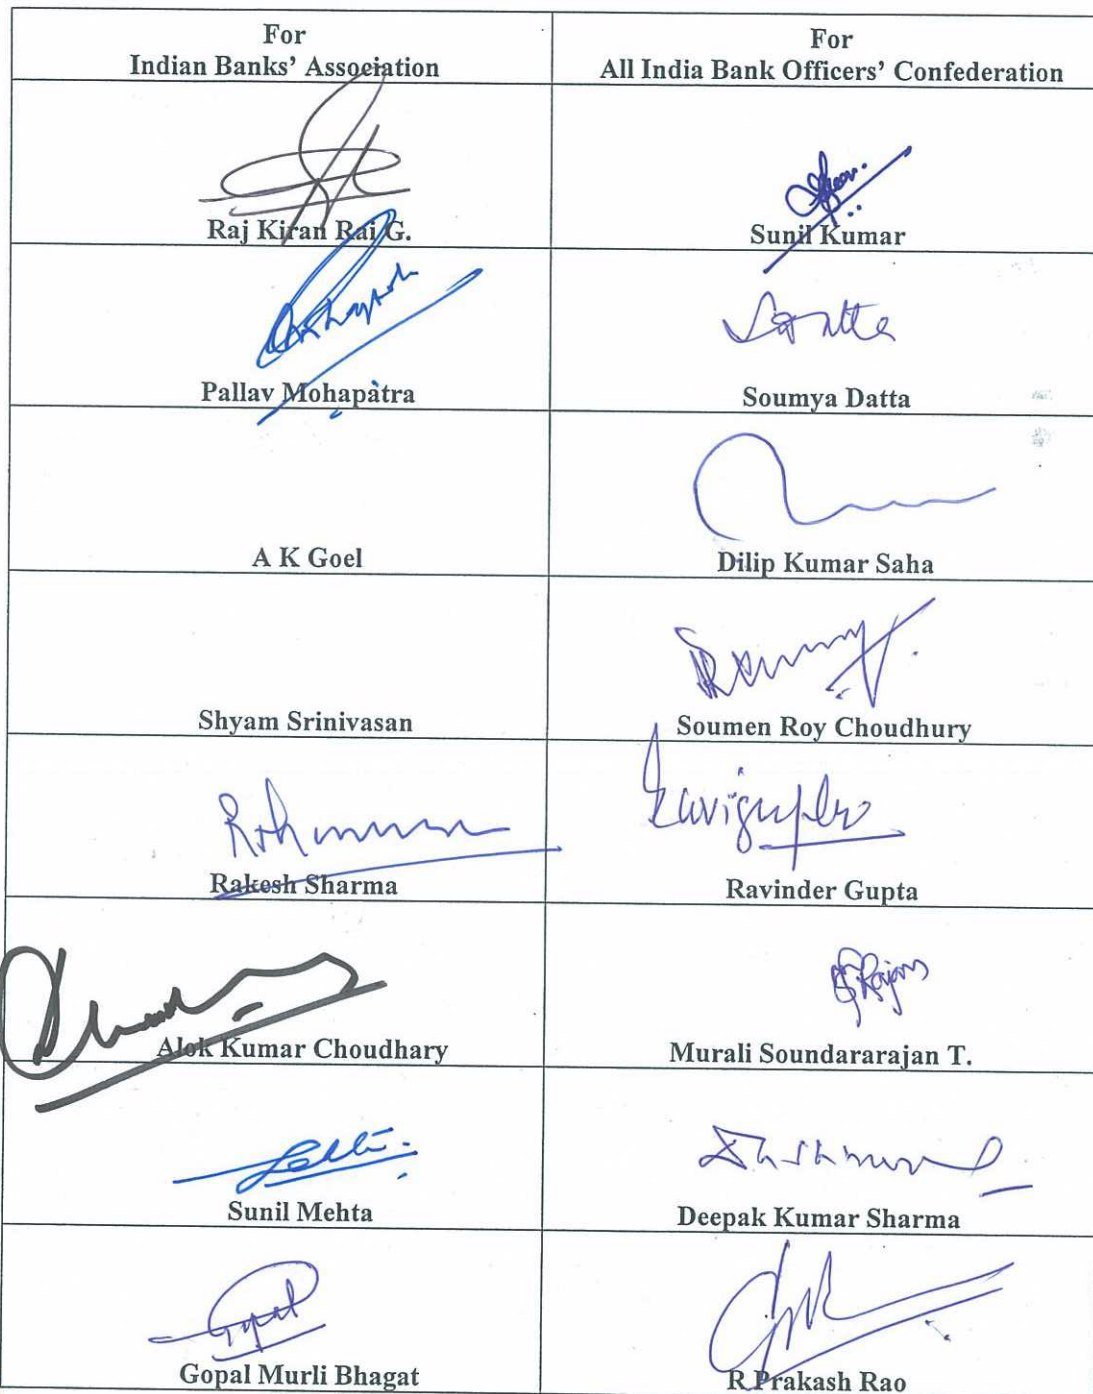 For
Indian Banks' Association
For
All India Bank Officers' Confederation
Raj Kiran Rai G.
Sunil Kumar
Pallav Mohapatra
Soumya Datta
A K Goel
Dilip Kumar Saha
Shyam Srinivasan
Soumen Roy Choudhury
Ravigupta
Rakesh Sharma
Ravinder Gupta
Alok Kumar Choudhary
Murali Soundararajan T.
Sunil Mehta
Deepak Kumar Sharma
Gopal
Gopal Murli Bhagat
R Prakash Rao